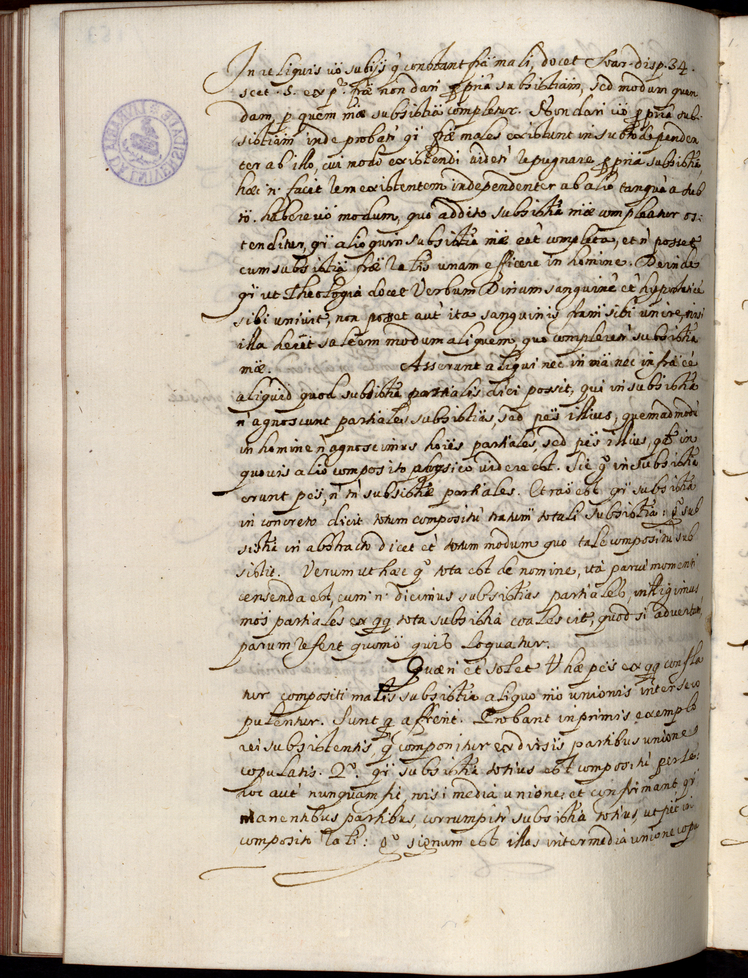 In reliquis ũo subijs q̃ constant frã mali, docet Suar. disp. 34.
sect. 5. ex pª. frã non dari ꝓpriã subsistiãm, sed modum quen
dam, p quem mæ subsistiã completur. Non dari ũo ꝓpriã sub-
sistiãm inde probatʳ qĩ fræ males existunt in subto dependen
ter ab illo, cui modo existendi videtʳ repugnare ꝓpriã subsistiã,
hæc n. facit rem existentem independenter ab alio tanquã a sub
tõ. habere ũo modum, quo addito subsistiã mæ compleatur os-
tenditur, qĩ alioquin subsistiã mæ eẽt completa, et ñ posset
cum subsistiã fræ rãlis unam efficere in homine. Deinde
qĩ ut Theologia docet Verbum Divinum sanguinẽ et hypostaticè
sibi univit, non posset autẽ ita sanguinis fram sibi unire, nisi
illa hẽret saltem modum aliquem, quo completur subsistiã
mæ. Asserunt aliqui nec in mã nec in frã eẽ
aliquid quod subsistiã partialis dici possit, qui in subsistiã
ñ agnoscunt partiales subsistiãs, sed ptẽs illius, quemadmodũ
in homine ñ agnoscimus hoies partiales, sed ptẽs illius, qđ in
quovis alio composito physico videre est. Sic gº in subsistiã
erunt ptẽs, ñ tñ subsistiæ partiales. Et raõ est qĩ subsistiã
in concreto dicit totum compositũ naturæ totali subsistiã: gº sub
sistiã in abstracto dicet et totum modum quo tale compositum sub
sistit. Verum ut hæc qº tota est de nomine, ita parui momenti
censenda est, cum n. dicimus subsistias partiales, intelligimus
mõs partiales ex qq̃ tota subsistiã coalescit, quod si advertatur,
parum refert quomõ quis loquatur.
Quæri et solet Ʋ hæ ptẽs ex qq̃ confla
tur compositi malis subsistiã aliquo mõ unionis inter se co
pulentur. Sunt q̃ affirẽnt. Probant inprimis exemplo
rei subsistentis q̃ componitur ex divisis partibus unione
copulatis. 2º. qĩ subsistiã totius est compositũ per se:
hoc autẽ nunquam fit, nisi media unione, et confirmant qĩ
manentibus partibus, corrumpitʳ subsistiã totius, ut fit in
composito rãli: gº signum est illas intermedia unione copu